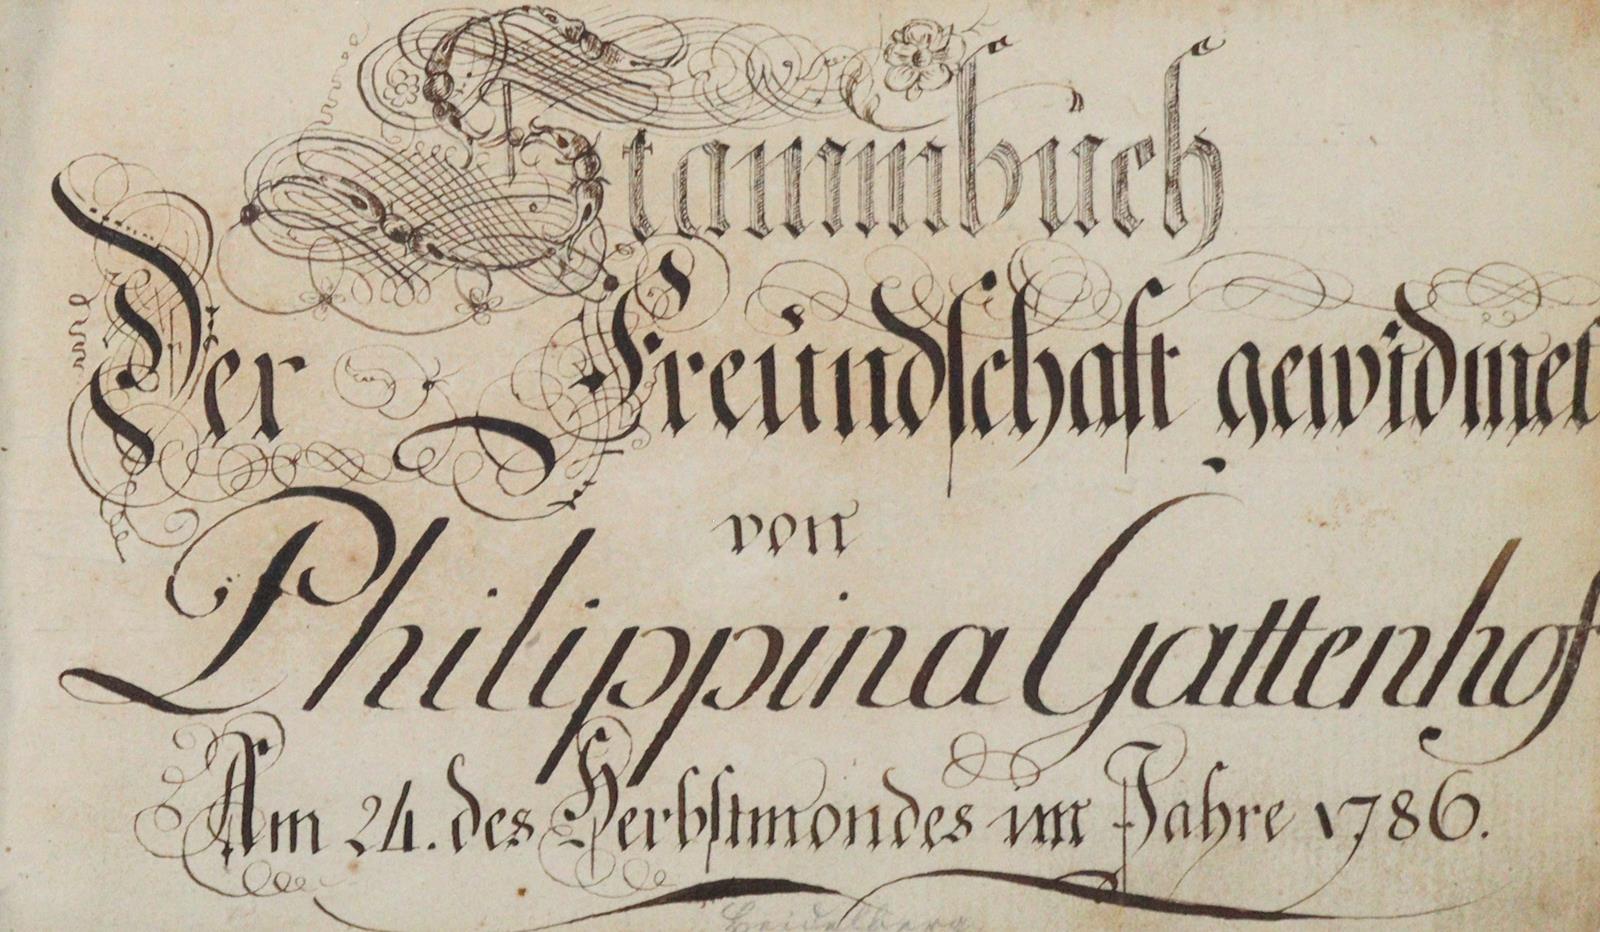 Stammbuch
Der Freündschaft gewidmet
von
Philippina Gattenhof
Am 24. des Herbstmondes im Jahre 1786.
Heidelberg